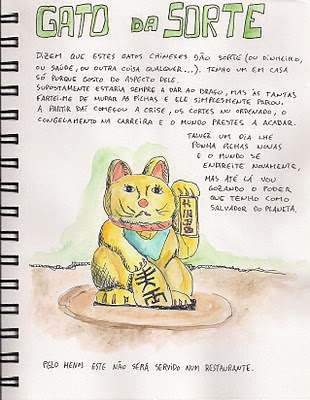 GATO DA SORTE
DIZEM QUE ESTES GATOS CHINESES DÃO SORTE (OU DINHEIRO,
OU SAÚDE, OU OUTRA COISA QUALQUER...). TENHO UM EM CASA
SÓ PORQUE GOSTO DO ASPECTO DELE.
SUPOSTAMENTE ESTARIA SEMPRE A DAR AO BRAÇO, MAS ÀS TANTAS
FARTEI-ME DE MUDAR AS PILHAS E ELE SIMPLESMENTE PAROU.
A PARTIR DAÍ COMEÇOU A CRISE, OS CORTES NO ORDENADO, O
CONGELAMENTO NA CARREIRA E O MUNDO PRESTES A ACABAR.
TALVEZ UM DIA LHE
PONHA PILHAS NOVAS
E O MUNDO SE
ENDIREITE NOVAMENTE,
MAS ATÉ LÁ VOU
GOZANDO O PODER
QUE TENHO COMO
SALVADOR DO PLANETA.
PELO MENOS ESTE NÃO SERÁ SERVIDO NUM RESTAURANTE.